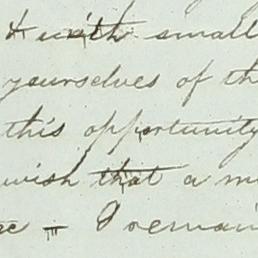 & with small
yourselves of th
this opportunity
wish that a m
— I remain